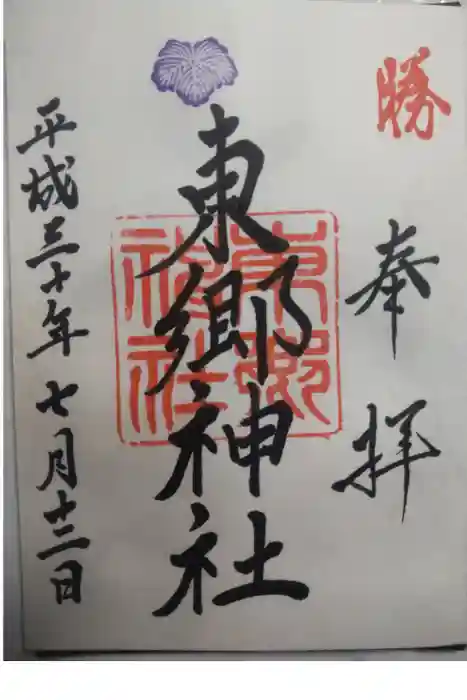 勝
奉拝
東郷神社
東郷神社
平成三十年七月十三日